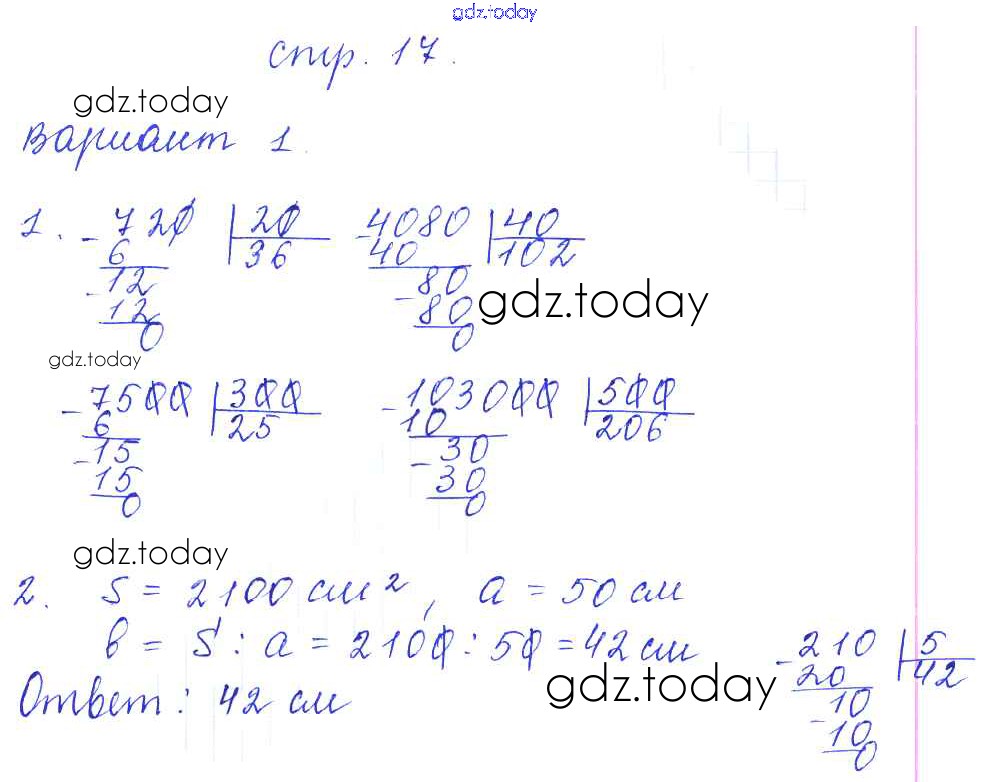 gdz.today
стр. 17.
gdz.today
Вариант 1.
1. - 720 | 20 - 4080 | 40
6 36 40 102
- 12 - 80
12 80 gdz.today
0 0
gdz.today
- 7500 | 300 - 103000 | 500
6 25 10 206
- 15 - 30
15 30
0 0
gdz.today
2. S = 2100 см², a = 50 см
в = S : a = 2100 : 50 = 42 см - 210 | 5
Ответ: 42 см gdz.today 20 42
- 10
10
0